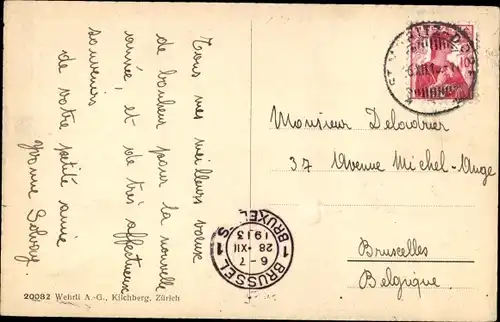 Tous mes meilleurs voeux
de bonheur pour la nouvelle
année, et de très affectueux
souvenirs
de votre petite amie
Yvonne Solvay.
ST. MORITZ DORF
10
Monsieur Delodrier
37 Avenue Michel-Ange
Bruxelles
Belgique.
1 BRUSSEL S
6-7
28 XII
1913
1 BRUXEL
20082 Wehrli A.-G., Kilchberg, Zürich